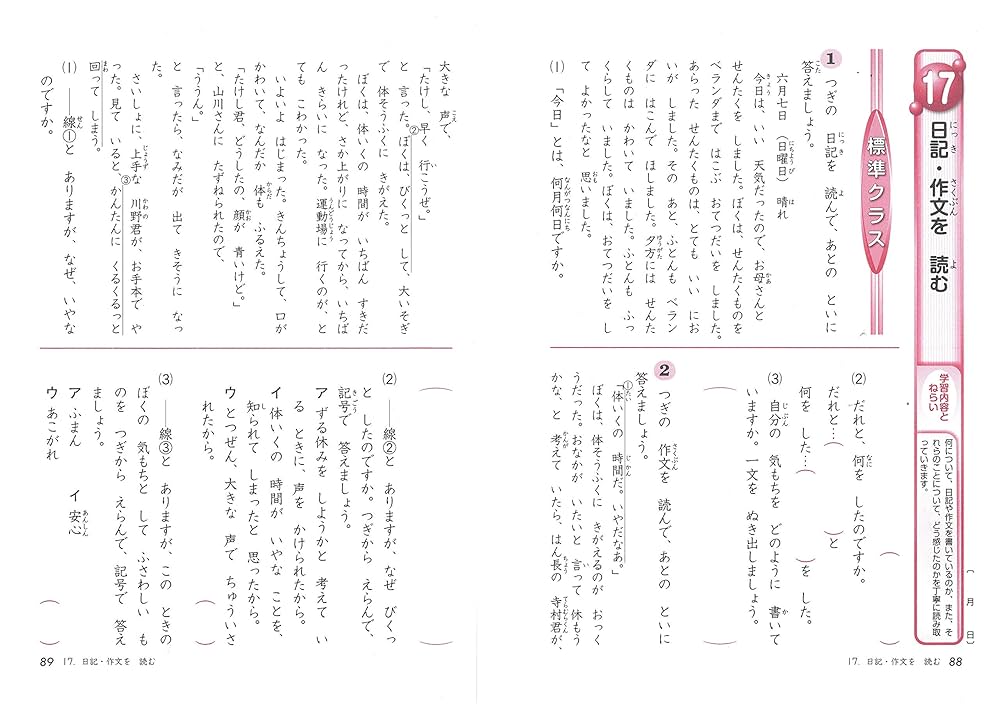 17
日記・作文を 読む
学習内容と
ねらい
何について、日記や作文を書いているのか、また、そ
れらのことについて、どう感じたのかを丁寧に読み取
っていきます。
〔 月 日〕
標準クラス
1 つぎの 日記を 読んで、あとの といに
答えましょう。
六月七日 (日曜日) 晴れ
今日は、いい 天気だったので、お母さんと
せんたくを しました。ぼくは、せんたくものを
ベランダまで はこぶ おてつだいを しました。
あらった せんたくものは、とても いい にお
いが しました。その あと、ふとんも ベラン
ダに はこんで ほしました。夕方には せんた
くものは かわいて いました。ふとんも ふっ
くらして いました。ぼくは、おてつだいを し
て よかったなと 思いました。
(1) 「今日」とは、何月何日ですか。
( )
(2) だれと、何を したのですか。
だれと…( )と
何を した…( )を した。
(3) 自分の 気もちを どのように 書いて
いますか。一文を ぬき出しましょう。
( )
2 つぎの 作文を 読んで、あとの といに
答えましょう。
「①体いくの 時間だ。いやだなあ。」
ぼくは、体そうふくに きがえるのが おっく
うだった。おなかが いたいと 言って 休もう
かな、と 考えて いたら、はん長の 寺村君が、
17. 日記・作文を 読む 88
大きな 声で、
「たけし、早く 行こうぜ。」
と 言った。②ぼくは、びくっと して、大いそぎ
で 体そうふくに きがえた。
ぼくは、体いくの 時間が いちばん すきだ
ったけれど、さか上がりに なってから、いちば
ん きらいに なった。運動場に 行くのが、と
ても こわかった。
いよいよ はじまった。きんちょうして、口が
かわいて、なんだか 体も ふるえた。
「たけし君、どうしたの、顔が 青いけど。」
と、山川さんに たずねられたので、
「ううん。」
と 言ったら、なみだが 出て きそうに なっ
た。
さいしょに、上手な 川野君が、お手本で や
った。見て いると、③かんたんに くるくるっと
回って しまう。
(1) ――線①と ありますが、なぜ、いやな
のですか。
( )
(2) ――線②と ありますが、なぜ びくっ
と したのですか。つぎから えらんで、
記号で 答えましょう。
ア ずる休みを しようかと 考えて い
る ときに、声を かけられたから。
イ 体いくの 時間が いやな ことを、
知られて しまったと 思ったから。
ウ とつぜん、大きな 声で ちゅういさ
れたから。
( )
(3) ――線③と ありますが、この ときの
ぼくの 気もちと して ふさわしい も
のを つぎから えらんで、記号で 答え
ましょう。
ア ふまん イ 安心
ウ あこがれ
( )
89 17. 日記・作文を 読む